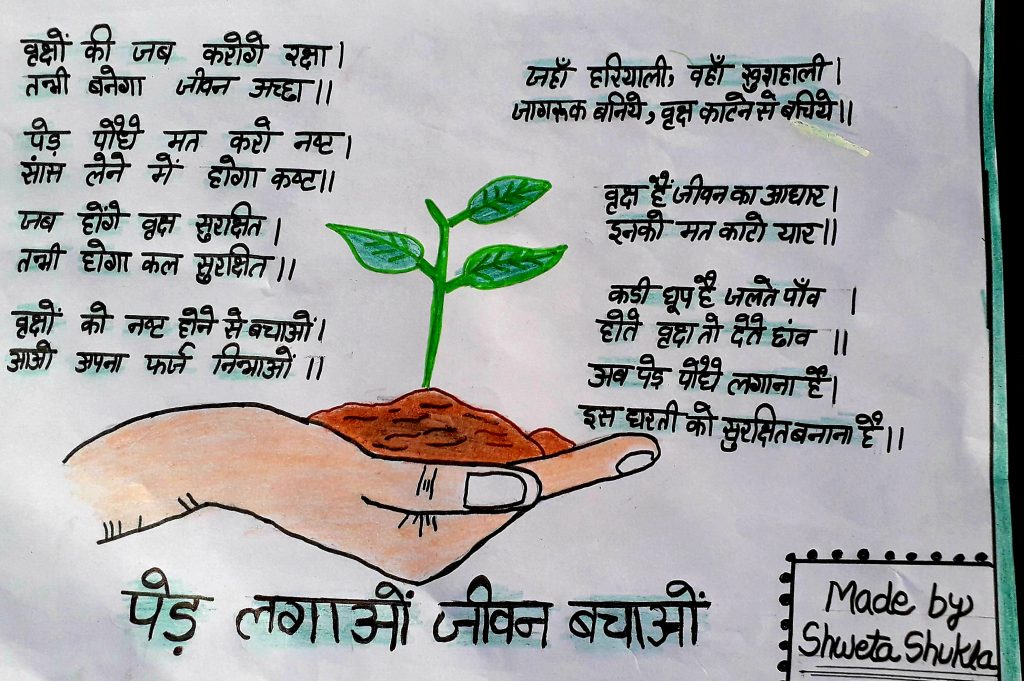 वृक्षों की जब करोगे रक्षा।
तभी बनेगा जीवन अच्छा॥
पेड़ पौधे मत करो नष्ट।
सांस लेने में होगा कष्ट॥
जब होंगे वृक्ष सुरक्षित।
तभी होगा कल सुरक्षित॥
वृक्षों को नष्ट होने से बचाओं।
आओ अपना फर्ज निभाओं॥
जहाँ हरियाली, वहाँ खुशहाली।
जागरूक बनिये, वृक्ष काटने से बचिये॥
वृक्ष हैं जीवन का आधार।
इनको मत काटो यार॥
कडी धूप है जलते पाँव।
होते वृक्ष तो देते छांव॥
अब पेड़ पौधे लगाना है।
इस धरती को सुरक्षित बनाना है॥
पेड़ लगाओं जीवन बचाओं
Made by
Shweta Shukla